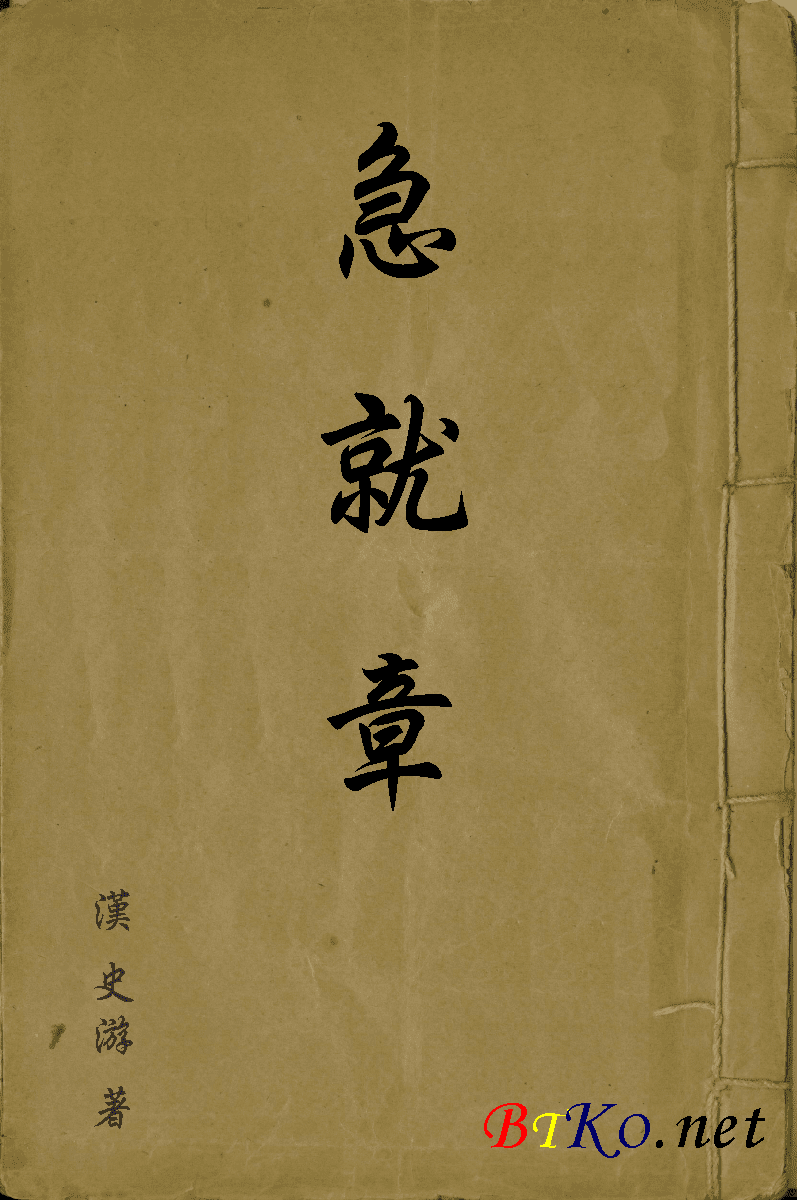 急就章
漢 史游 著
BTKo.net